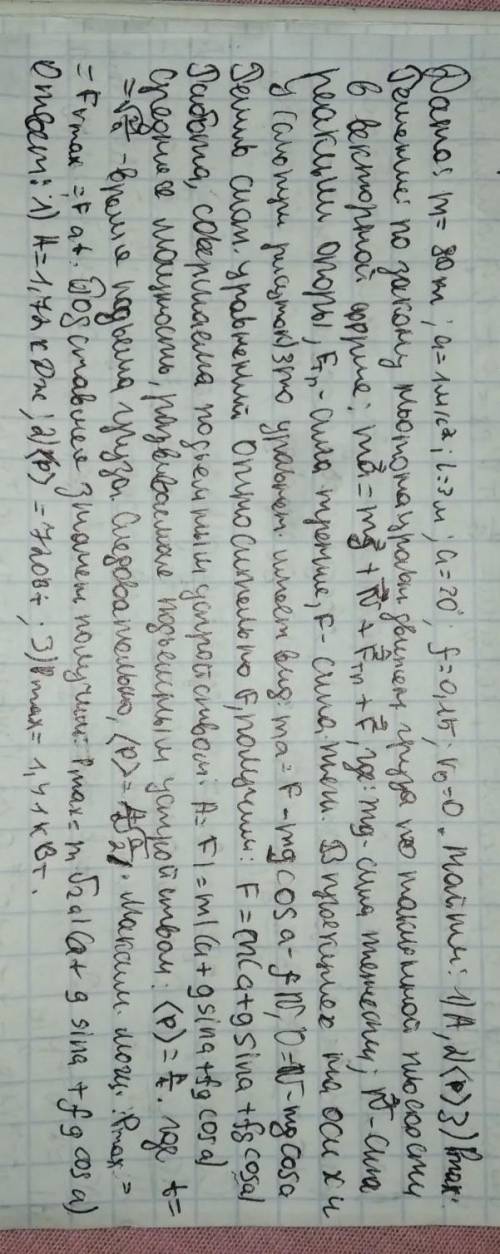 Дано: m = 80 кг; a = 1 м/с²; l = 3 м; α = 20°; f = 0,15; v₀ = 0. Найти: 1) A, 2) ⟨P⟩ 3) Pmax.
Решение: по закону Ньютона уравн движен груза по наклонной плоскости
в векторной форме: ma⃗ = mg⃗ + N⃗ + F⃗тр + F⃗, где: mg - сила тяжести; N⃗ - сила
реакции опоры, Fтр - сила трения, F - сила тяги. В проекциях на оси x и
y это уравнен имеет вид: ma = F - mg cos a - fN, 0 = N - mg cos a
Решив сист. уравнений относительно F, получим: F = m(a + g sin a + fg cos a)
Работа, совершаема подъемным устройством: A = Fl = ml(a + g sin a + fg cos a)
Среднее мощность, развиваемая подъемным устройством: ⟨P⟩ = A/t. где t =
= √2l/a - время подъема груза. Следовательно, ⟨P⟩ = A√a/2l. Максим. мощ.: Pmax =
= Fvmax = Fat. Подставляя значен получим: Pmax = m√2al (a + g sin a + fg cos a)
Ответ: 1) A = 1,72 кДж; 2) ⟨P⟩ = 720 Вт; 3) Pmax = 1,41 кВт.